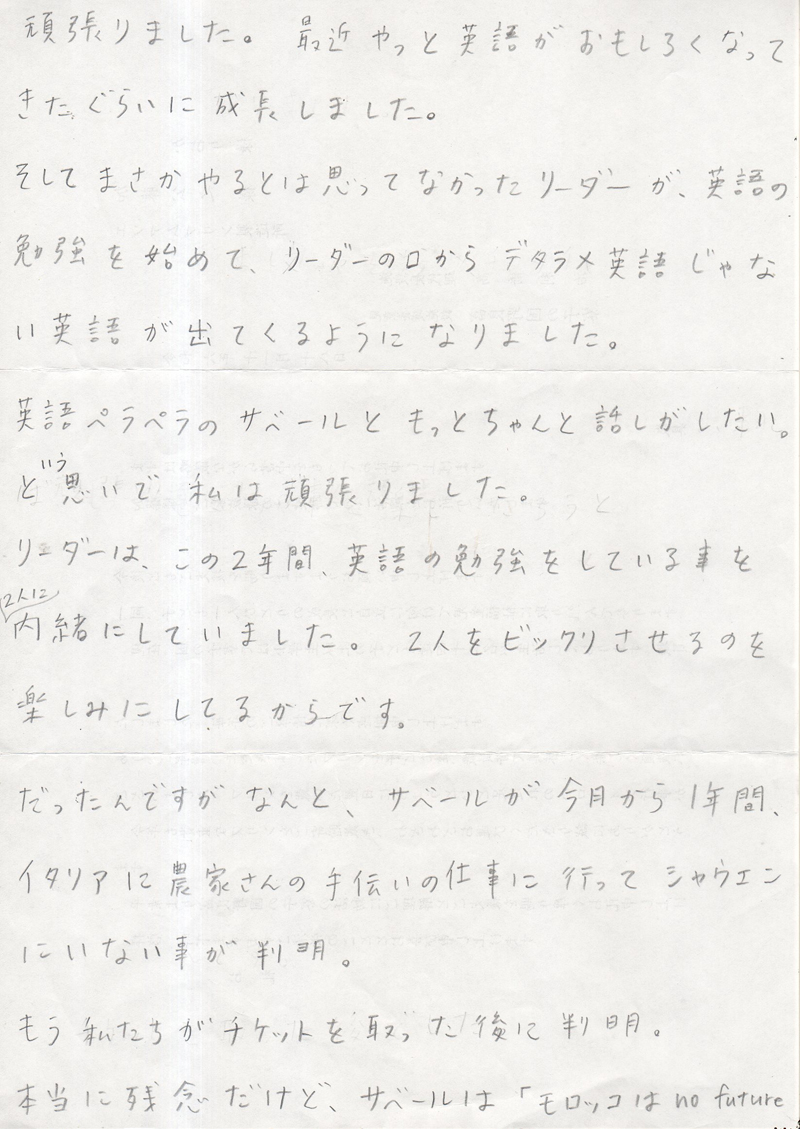 頑張りました。 最近 やっと 英語が おもしろくなって
きた ぐらいに 成長しました。
そして まさか やるとは思ってなかった リーダーが、英語の
勉強を始めて、リーダーの口から デタラメ英語 じゃな
い英語が出てくるように なりました。
英語ペラペラの サベールと もっとちゃんと 話しがしたい。
という思いで 私は頑張りました。
リーダーは、この2年間、英語の勉強をしている事を
2人に内緒にしていました。 2人をビックリさせるのを
楽しみにしてるからです。
だったんですが なんと、サベールが 今月から 1年間、
イタリアに 農家さんの手伝いの仕事に 行って シャウエン
にいない事が 判明。
もう 私たちが チケットを 取った後に 判明。
本当に 残念だけど、サベールは 「モロッコは no future